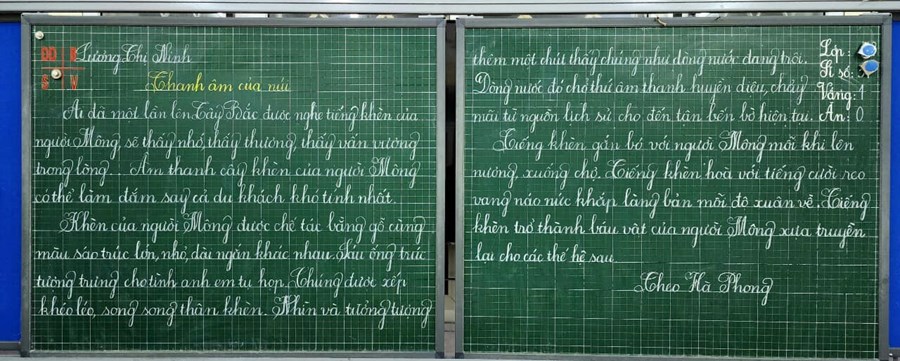 Lương Thị Ninh
Thanh âm của núi
Ai đã một lần lên Tây Bắc được nghe tiếng khèn của
người Mông, sẽ thấy nhớ, thấy thương, thấy vấn vương
trong lòng... Âm thanh cây khèn của người Mông
có thể làm đắm say cả du khách khó tính nhất.
Khèn của người Mông được chế tác bằng gỗ cùng
máu sáo trúc lớn, nhỏ, dài ngắn khác nhau. Sáu ống trúc
tượng trưng cho tình anh em tụ họp. Chúng được xếp
khéo léo, song song thân khèn. Nhìn và tưởng tượng
thêm một chút thấy chúng như dòng nước đang trôi.
Dòng nước đó chở thứ âm thanh huyền diệu, chảy
mãi từ nguồn lịch sử cho đến tận bến bờ hiện tại.
Tiếng khèn gắn bó với người Mông mỗi khi lên
nương, xuống chợ. Tiếng khèn hoà với tiếng cười reo
vang náo nức khắp làng bản mỗi độ xuân về. Tiếng
khèn trở thành báu vật của người Mông xưa truyền
lại cho các thế hệ sau.
Theo Hà Phong
Lớp:
Sĩ số:
Vắng: 1
Ăn: 0